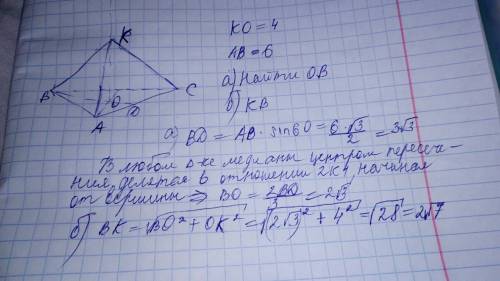 K
B
C
O
A
D
KO = 4
AB = 6
а) Найти OB
б) KB
а) BD = AB · sin60 = 6·√3/2 = 3√3
В любом Δ-ке медианы центром пересече-
ния делятся в отношении 2 к 1, начиная
от вершины ⇒ BO = 2BD/3 = 2√3
б) BK = √BO² + OK² = √(2√3)² + 4² = √28 = 2√7